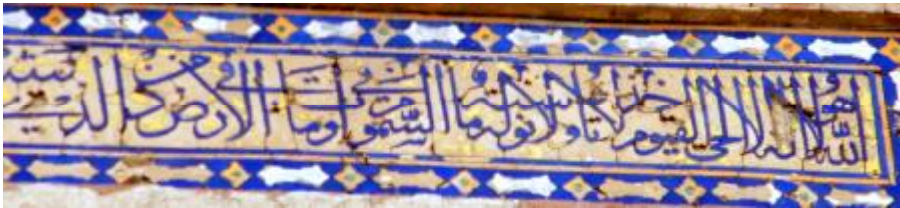 الله لا اله الا هو الحي القيوم لا تأخذه سنة ولا نوم له ما في السموات وما في الارض من ذا الذي يشفع